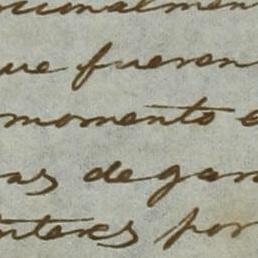 cionalmen
que fueren
momento e
as de gan
interes por